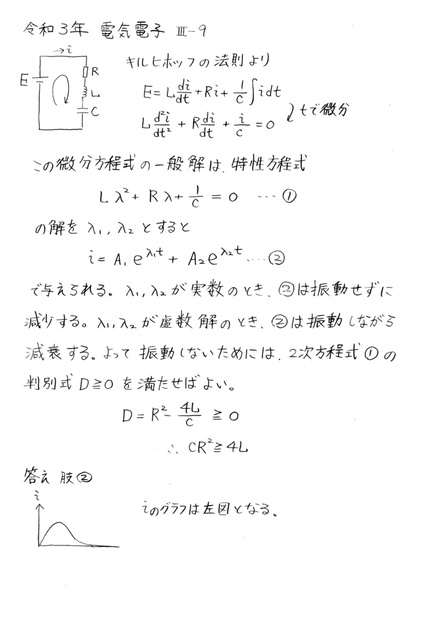 令和3年 電気電子 Ⅲ-9
→i
E
R
L
C
キルヒホッフの法則より
E = L di/dt + Ri + 1/C ∫i dt
L d²i/dt² + R di/dt + i/C = 0
tで微分
この微分方程式の一般解は、特性方程式
Lλ² + Rλ + 1/C = 0 ---- ①
の解をλ₁, λ₂とすると
i = A₁e^λ₁t + A₂e^λ₂t ---- ②
で与えられる。λ₁, λ₂が実数のとき、②は振動せずに
減少する。λ₁, λ₂が虚数解のとき、②は振動しながら
減衰する。よって振動しないためには、2次方程式①の
判別式D≧0を満たせばよい。
D = R² - 4L/C ≧ 0
∴ CR² ≧ 4L
答え 肢②
i
iのグラフは左図となる。